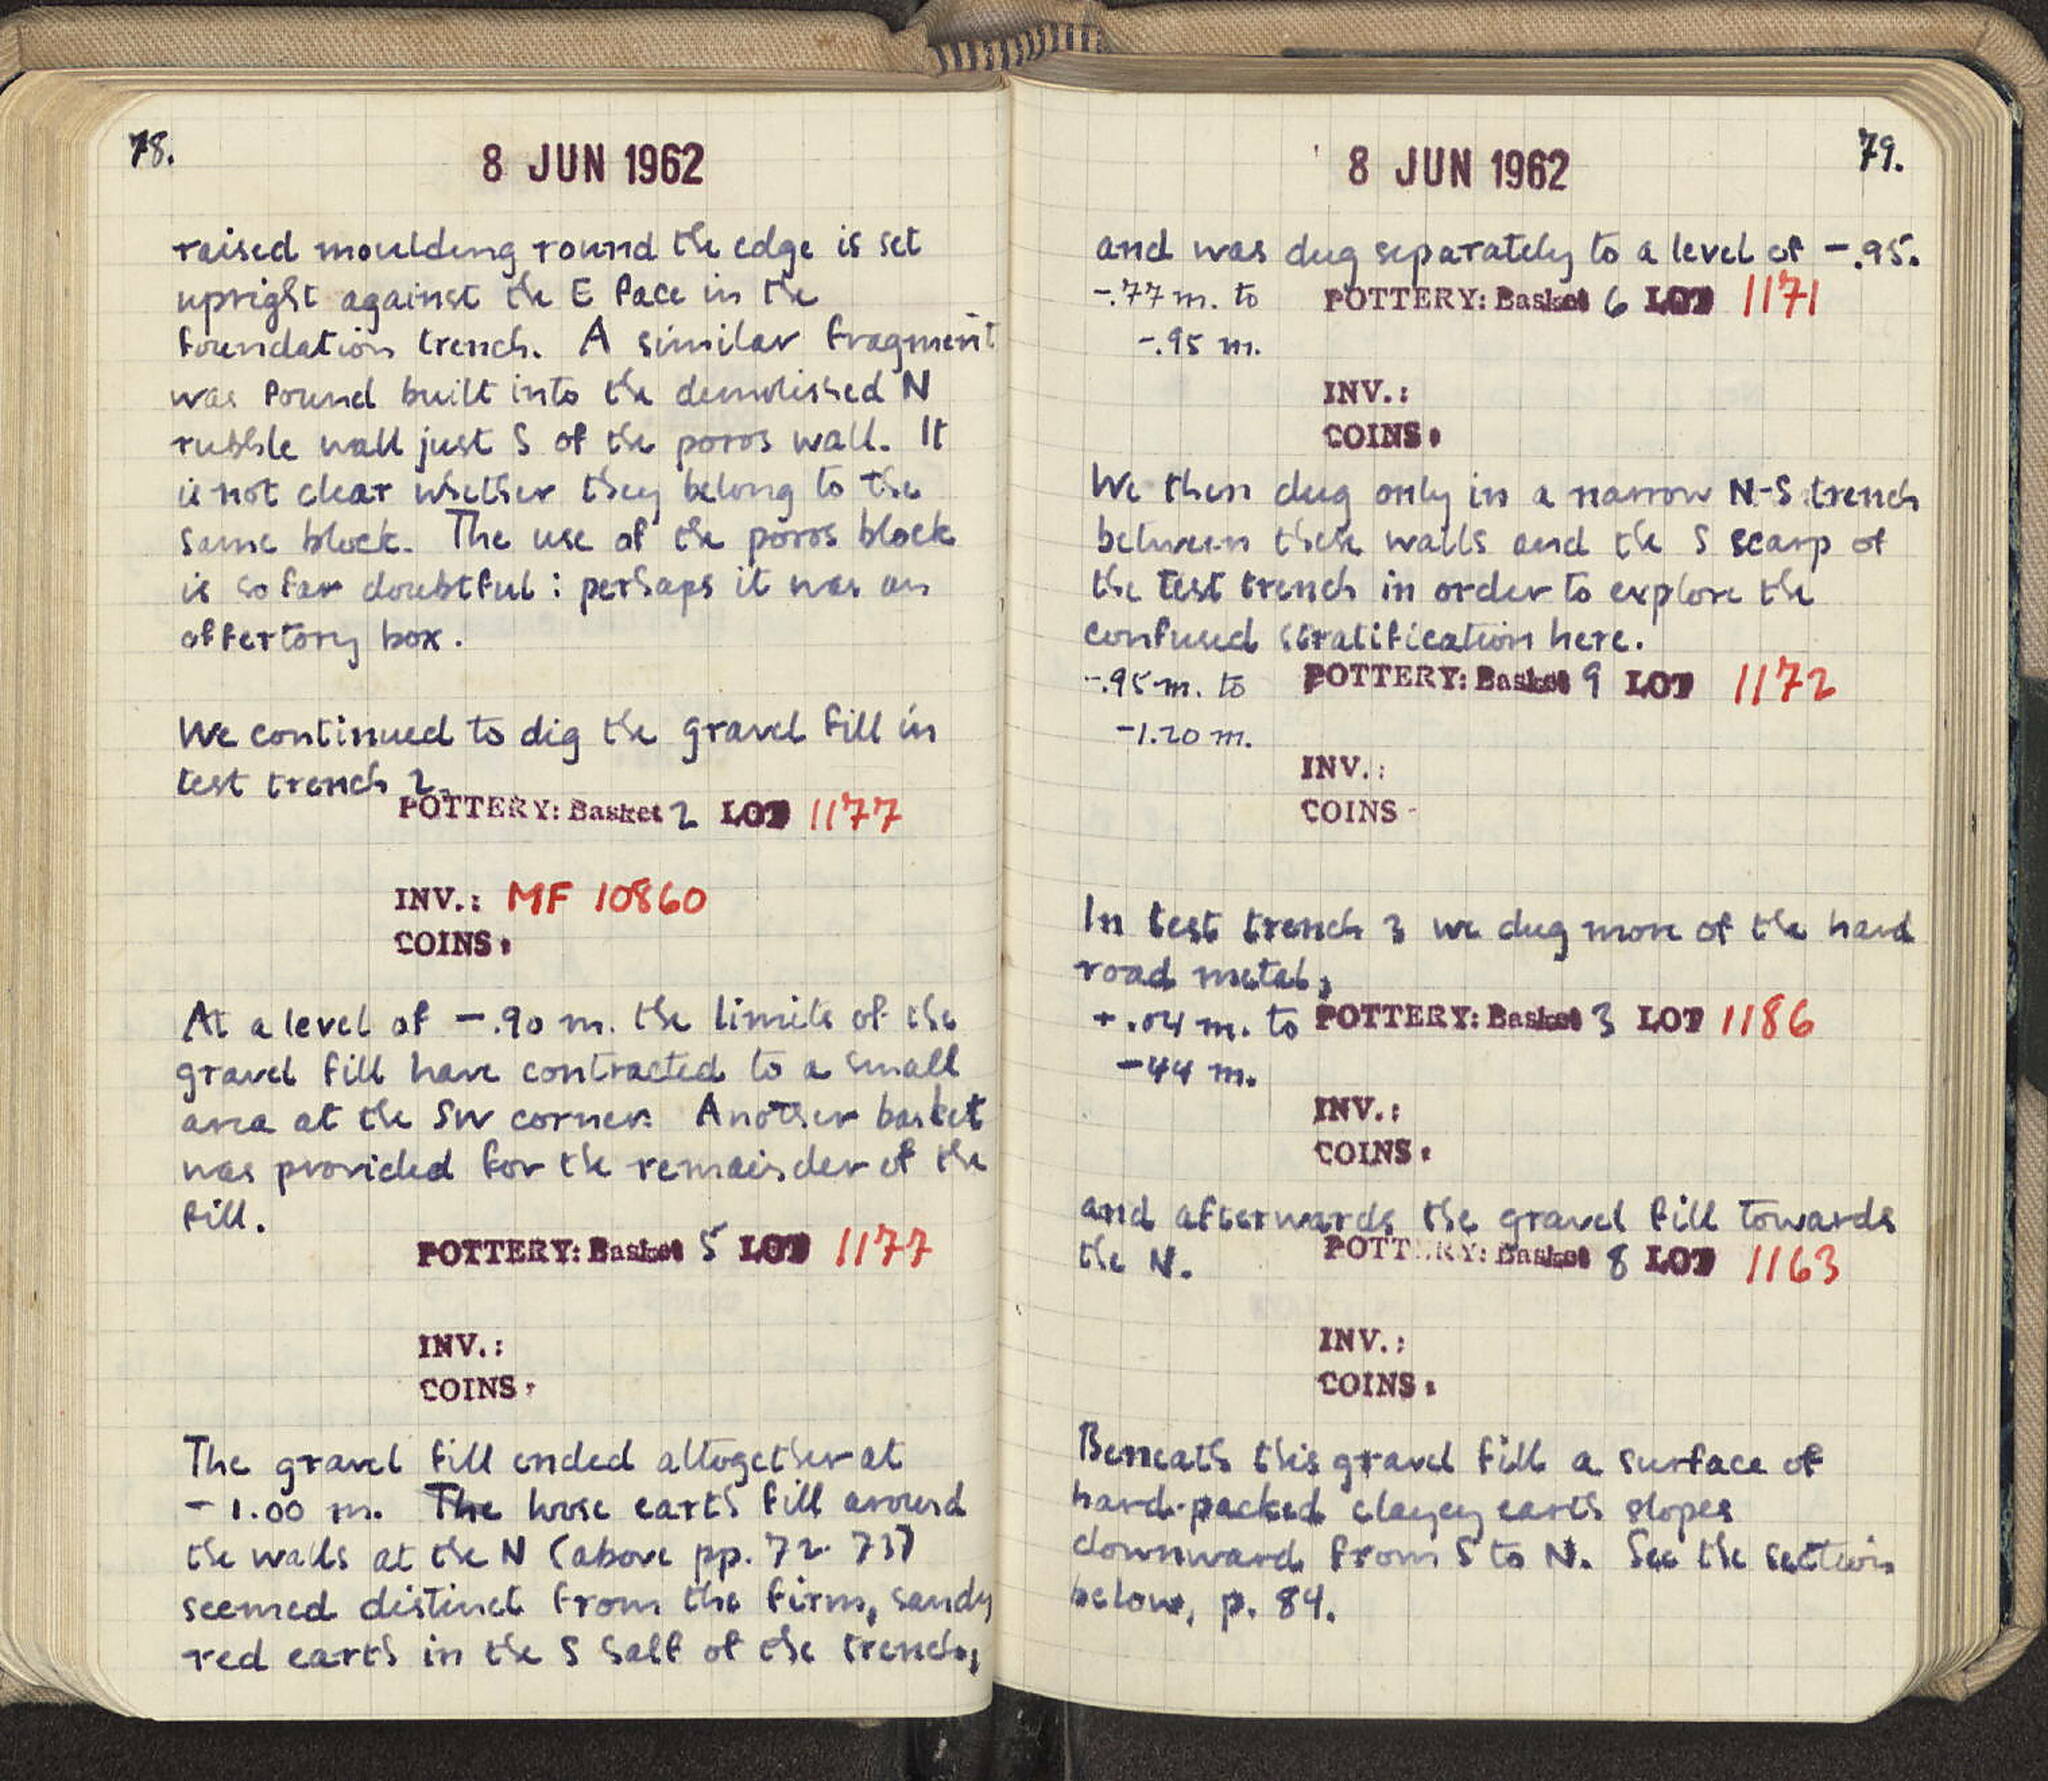 78.
8 JUN 1962
raised moulding round the edge is set
upright against the E face in the
foundation trench. A similar fragment
was found built into the demolished N
rubble wall just S of the poros wall. It
is not clear whether they belong to the
same block. The use of the poros block
is so far doubtful : perhaps it was an
offertory box.
We continued to dig the gravel fill in
test trench 2.
POTTERY: Basket 2 LOT 1177
INV.: MF 10860
COINS:
At a level of -.90 m. the limits of the
gravel fill have contracted to a small
area at the SW corner. Another basket
was provided for the remainder of the
fill.
POTTERY: Basket 5 LOT 1177
INV.:
COINS:
The gravel fill ended altogether at
-1.00 m. The loose earth fill around
the walls at the N (above pp. 72-73)
seemed distinct from the firm, sandy
red earth in the S half of the trench,
8 JUN 1962
79.
and was dug separately to a level of -.95.
-.77 m. to POTTERY: Basket 6 LOT 1171
-.95 m.
INV.:
COINS:
We then dug only in a narrow N-S trench
between these walls and the S scarp of
the test trench in order to explore the
confused stratification here.
-.95 m. to POTTERY: Basket 9 LOT 1172
-1.20 m.
INV.:
COINS
In test trench 3 we dug more of the hard
road metal,
+.04 m. to POTTERY: Basket 3 LOT 1186
-44 m.
INV.:
COINS:
and afterwards the gravel fill towards
the N. POTTERY: Basket 8 LOT 1163
INV.:
COINS:
Beneath this gravel fill a surface of
hard-packed clayey earth slopes
downward from S to N. See the section
below, p. 84.